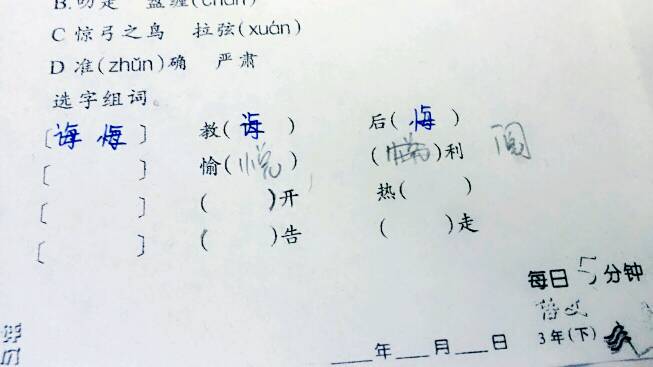 B.叨走 盘缠(chán)
C 惊弓之鸟 拉弦(xuán)
D 准(zhǔn)确 严肃
选字组词。
[诲 悔] 教(诲) 后(悔)
[ ] 愉(悦) ( )利 阅
[ ] ( )开 热( )
[ ] ( )告 ( )走
每日5分钟
语文
3年(下)
___年___月___日